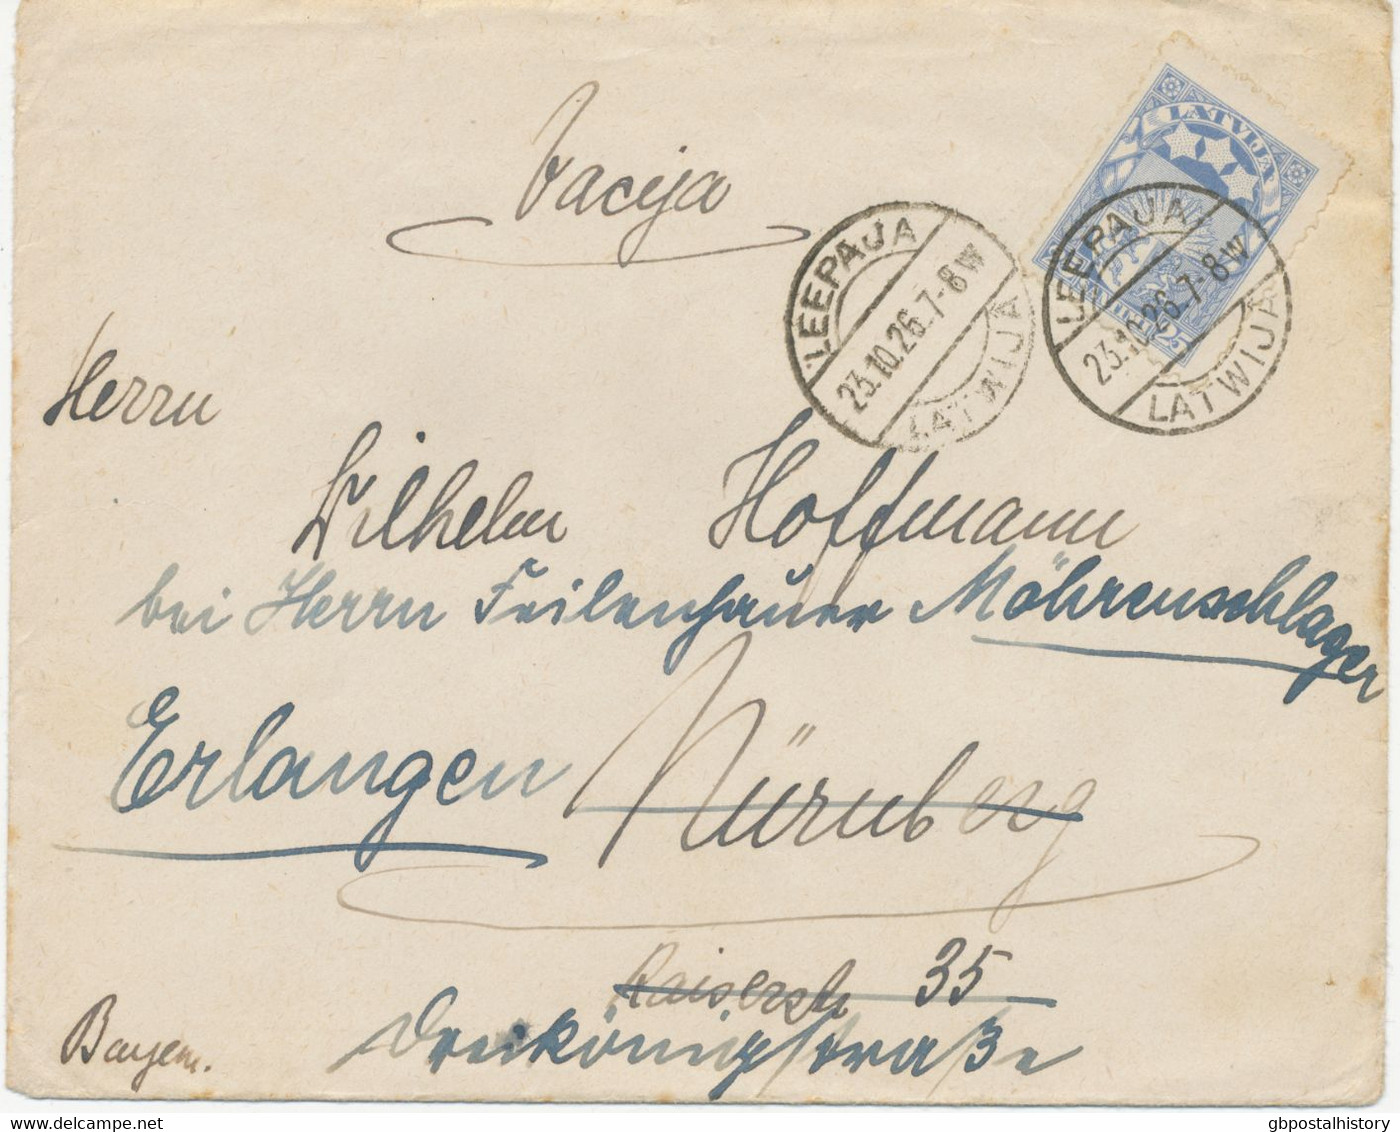 Vacija
LATVIJA
25
LEEPAJA
23.10.26.7-8W
LATWIJÂ
LEEPAJA
23.10.26.7-8W
LATWIJÂ
Herrn
Wilhelm Hoffmann
bei Herrn Feilenhauer Möhrenschlager
Erlangen Nürnberg
Kaiserstr 35
Bayern. Dreikönigstraße
© gbpostalhistory